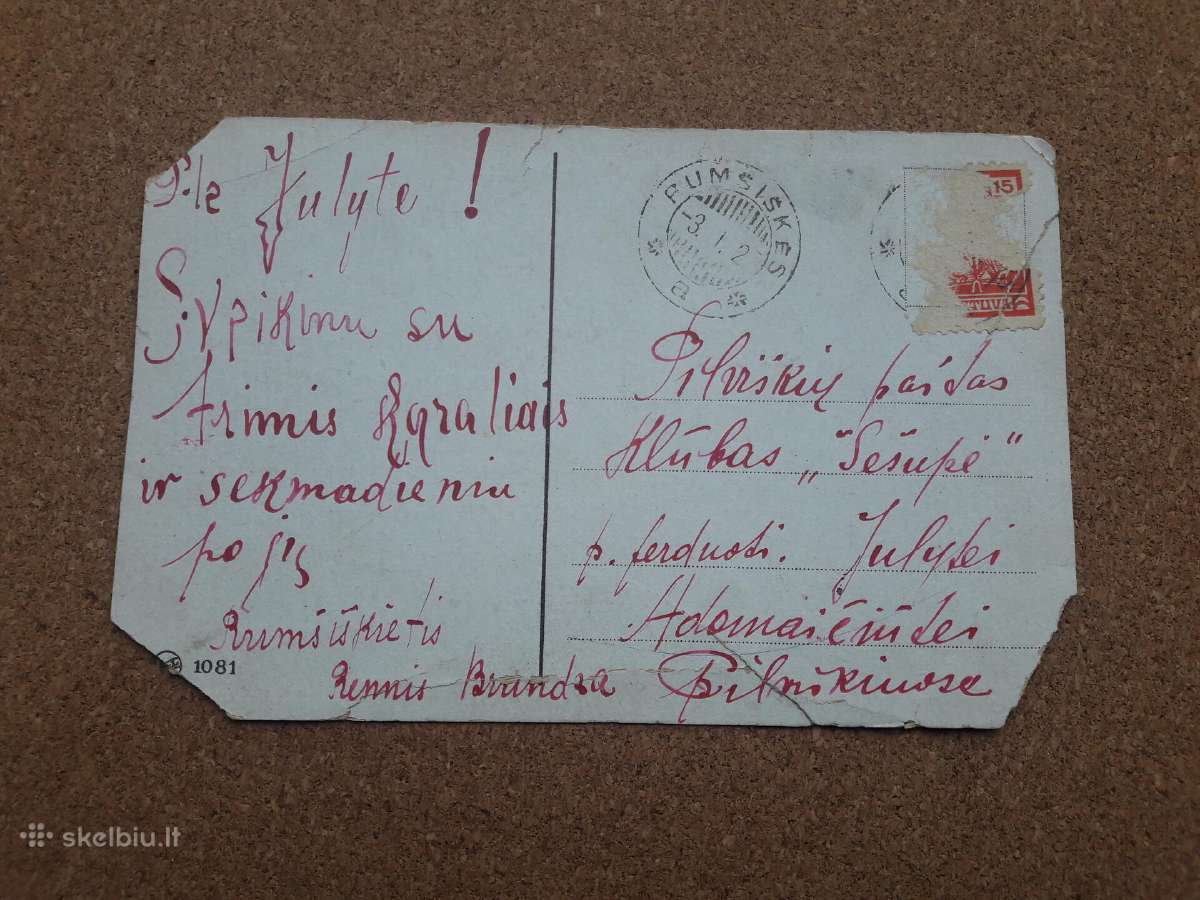 P-lė Julyte!
Svpikinu su
trimis Karaliais
ir sekmadieniu
po jų
Rumšiškietis
Brundza
1081
RUMŠIŠKĖS
-3. 1. 2
a
15
Pilviškių paštas
Klūbas „Šešupė"
p. ferduoti. Julytei
Adomaičiūtei
Pilviškiuose
skelbiu.lt